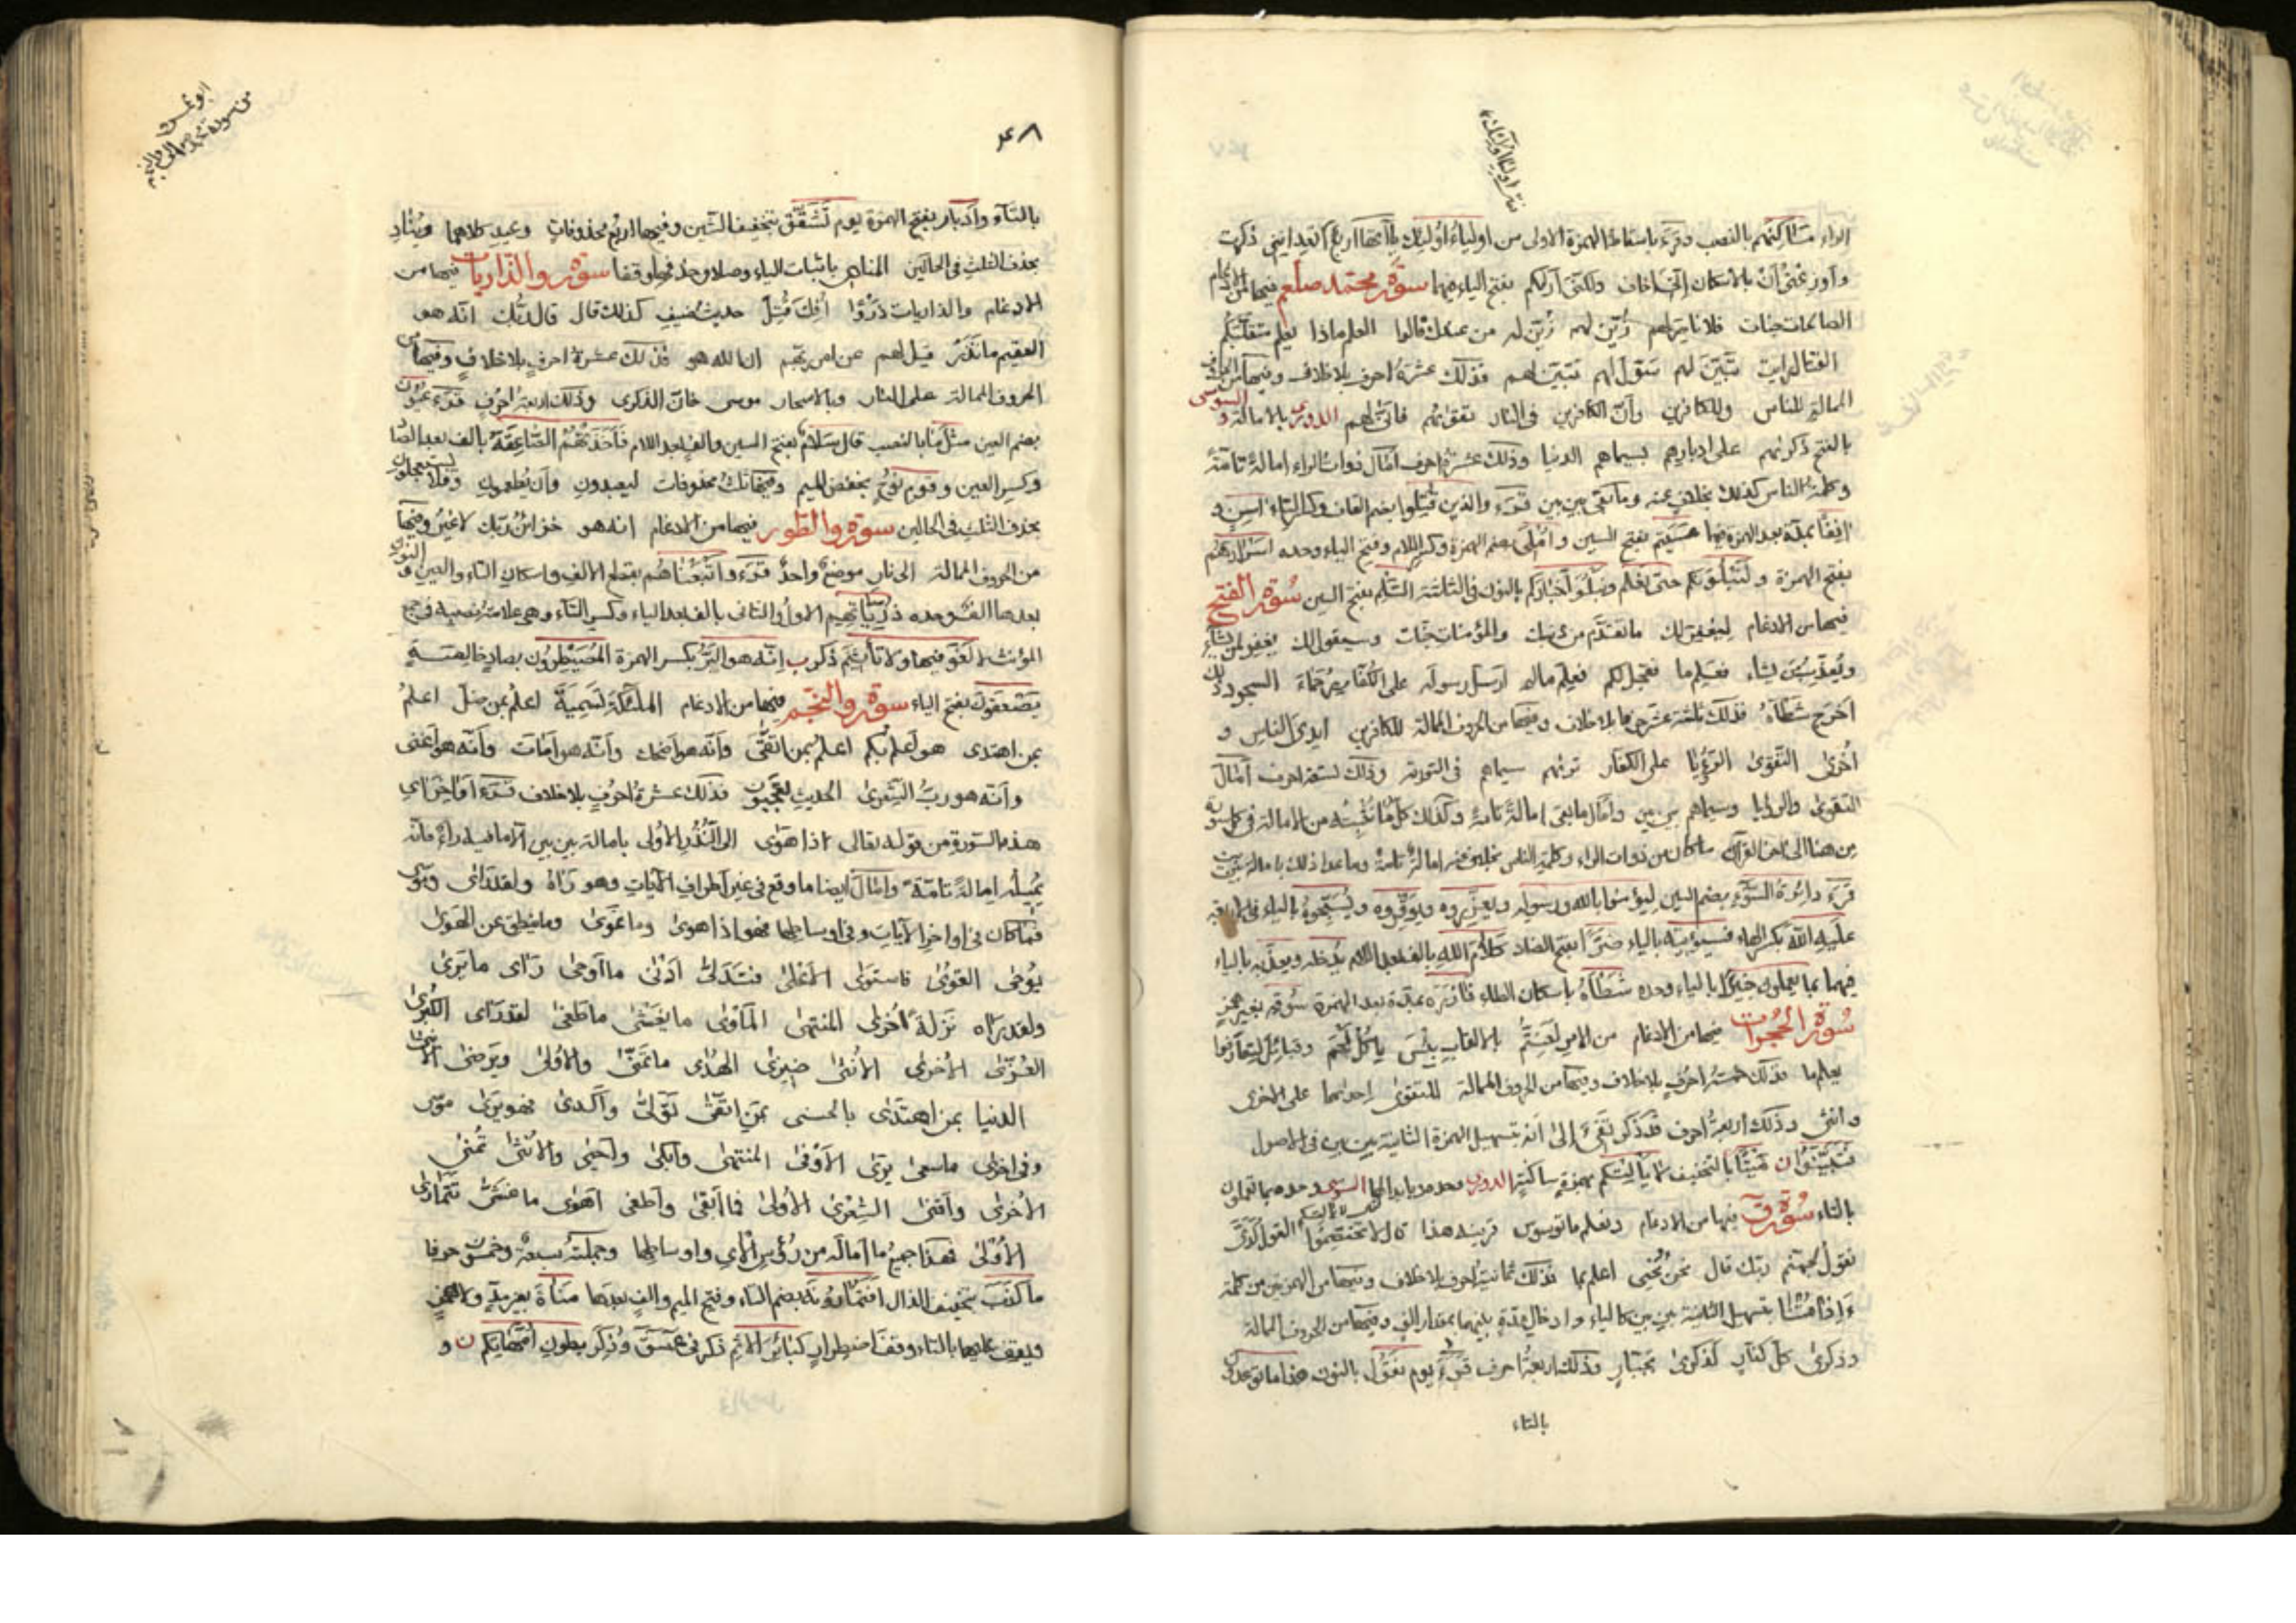 الراء مساكنهم بالنصب وقرء باسقاط الهمزة الاولى من اولياء اولئك يا آتها اربع اتعداننى ذكرت
واوزعنى ان بالاسكان انى اخاف ولكنى اراكم بفتح الياء فيهما سورة محمد صلعم فيها من الادغام
الصالحات جنات فلا ناصر لهم زين لهم زين له من عندك قالوا العلم ماذا يعلم متقلبكم
القتال رايت تبين لهم سنول لهم تبين لهم فذلك عشرة احرف بلا خلاف وفيها من الحروف
الممالة للناس وللكافرين وان الكافرين فى النار تقويهم فانى لهم الدورى بالامالة و السوسى
بالفتح ذكريهم على ادبارهم بسيماهم الدنيا وذلك عشرة احرف امال ذوات الراء امالة تامة
وكلمة الناس كذلك بخلاف عنه وما بقى بين بين قرء والذين قتلوا بضم القاف وكسر التاء اسن و
انفا بمدة بعد الهمزة فيهما عسيتم بفتح السين واملى بضم الهمزة وكسر اللام وفتح الياء وحده اسرارهم
بفتح الهمزة ولنبلونكم حتى نعلم ونبلو اخباركم بالنون فى الثلثة السلم بفتح السين سورة الفتح
فيها من الادغام ليغفر لك ما تقدم من ذنبك والمؤمنات جنات وسيقول لك يغفر لمن يشاء
ويعذب من يشاء فعلم ما فعجل لكم فعلم ما لم ارسل رسوله على الكفار رحماء السجود ذلك
اخرج شطأه فذلك ثلثة عشر حرفا بلا خلاف وفيها من الحروف الممالة للكافرين ايدى الناس و
اخرى التقوى الرؤيا على الكفار تريهم سيماهم فى التورية وذلك تسعة احرف امال
التقوى والرؤيا وسيماهم بين بين وامال ما بقى امالة تامة وكذلك كل ما نحبسه من الامالة فى كل سورة
من هنا الى اخر القرآن ما كان من ذوات الراء وكلمة الناس بخلاف فيه امالة تامة وما عدا ذلك بامالة بين بين
قرء دائرة السوء بضم السين ليؤمنوا بالله ورسوله ويعزروه ويوقروه ويسبحوه بالياء فى الاربعة
عليه الله بكسر الهاء فسيؤتيه بالياء ضرا بفتح الضاد كلام الله بالف بعد اللام يدخله ويعذبه بالياء
فيهما بما يعملون خبيرا بالياء وحده شطأه باسكان الطاء فآزره بمدة بعد الهمزة سوقه بغير همز
سورة الحجرات فيها من الادغام من الامر لعنتم بالالقاب بئس ياكل لحم وقبائل لتعارفوا
يعلم ما فذلك خمسة احرف بلا خلاف وفيها من الحروف الممالة للتقوى احديهما على الاخرى
وانثى وذلك اربعة احرف قد ذكر تفىء الى انه تسهيل الهمزة الثانية بين بين فى الاصول
فتبينوا ن ميتا بالتخفيف لا يألتكم بهمزة ساكنة الدورى وحده يابدالها السوسى وحده بما تعملون
بالتاء سورة ق فيها من الادغام ونعلم ما توسوس قرينه هذا قال لا تختصموا القول لدى
نقول لجهنم ربك قال نحن نحيى اعلم بما فذلك ثمانية احرف بلا خلاف وفيها من الهمزتين من كلمة
ءاذا متنا بتسهيل الثانية بين بين كالياء وادخال مدة بينهما بمقدار الف وفيها من الحروف الممالة
وذكرى كل كفار لذكرى بجبار فذلك اربعة احرف قرء يوم نقول بالنون هذا ما توعدون
بالتاء
ابو عمرو
من سورة محمد صلى والنجم
٤٨
بالتاء وادبار بفتح الهمزة يوم تشقق بتخفيف الشين وفيها اربع محذوفات وعيد كلاهما ويناد
بحذف الثلث فى الحالين المناد باثبات الياء وصلا وحذفها وقفا سورة والذاريات فيها من
الادغام والذاريات ذروا افك قتل حديث ضيف كذلك قال قال ربك انه هو
العقيم ما تذر قيل لهم عن امر ربهم ان الله هو فذلك عشرة احرف بلا خلاف وفيها من
الحروف الممالة على النار وبالاسحار موسى فان الذكرى وذلك اربعة احرف قرء عيون
بضم العين مثل ما بالنصب قال سلام بفتح السين والف بعد اللام فاخذتهم الصاعقة بالف بعد الصاد
وكسر العين وقوم نوح بخفض الميم وفيها ثلث محذوفات ليعبدون وان يطعمون وفلا يستعجلون
بحذف الثلث فى الحالين سورة والطور فيها من الادغام انه هو خزائن ربك لا غير وفيها
من الحروف الممالة الى نار موضع واحد قرء واتبعناهم بقطع الالف واسكان التاء والعين والنون
بعدها الف وحده ذرياتهم الاول والثانى بالف بعد الياء وكسر التاء وهى علامة نصبه فى جمع
المؤنث لا لغو فيها ولا تأثيم ذكر ب انه هو البر بكسر الهمزة المصيطرون بصاد خالصة
يصعقون بفتح الياء سورة والنجم فيها من الادغام الملائكة تسمية اعلم بمن ضل اعلم
بمن اهتدى هو اعلم بكم اعلم بمن اتقى وانه هو اضحك وانه هو امات وانه هو اغنى
وانه هو رب الشعرى الحديث تعجبون فذلك عشرة احرف بلا خلاف قرء اواخر آى
هذه السورة من قوله تعالى اذا هوى الى النذر الاولى بامالة بين بين الا ما فيه راء فانه
يميله امالة تامة وامال ايضا ما وقع فى غير اطراف الآيات وهو رآه ولقد رأى
فما كان فى اواخر الآيات وفى اوساطها فهو اذا هوى وما غوى وما ينطق عن الهوى
يوحى القوى فاستوى الاعلى فتدلى ادنى ما اوحى رأى ما يرى
ولقد رآه نزلة اخرى المنتهى المأوى ما يغشى ما طغى لقد رأى الكبرى
العزى الاخرى الانثى ضيزى الهدى ما تمنى والاولى ويرضى الانثى
الدنيا بمن اهتدى بالحسنى بمن اتقى تولى واكدى فهو يرى موسى
وفى اخرى ما سعى يرى الاوفى المنتهى وابكى واحيى والانثى تمنى
الاخرى واقنى الشعرى الاولى فما ابقى واطغى اهوى ما غشى تتمارى
الاولى فهذا جميع ما اماله من رؤس الآى واوساطها وجملته سبعة وخمسون حرفا
ما كذب بتخفيف الذال افتمارونه بضم التاء وفتح الميم والف بعدها مناة بغير مد ولا همز
ويقف عليها بالتاء وقف اضطرار كبائر الاثم ذكر فى عسق وذكر بطون امهاتكم ن و